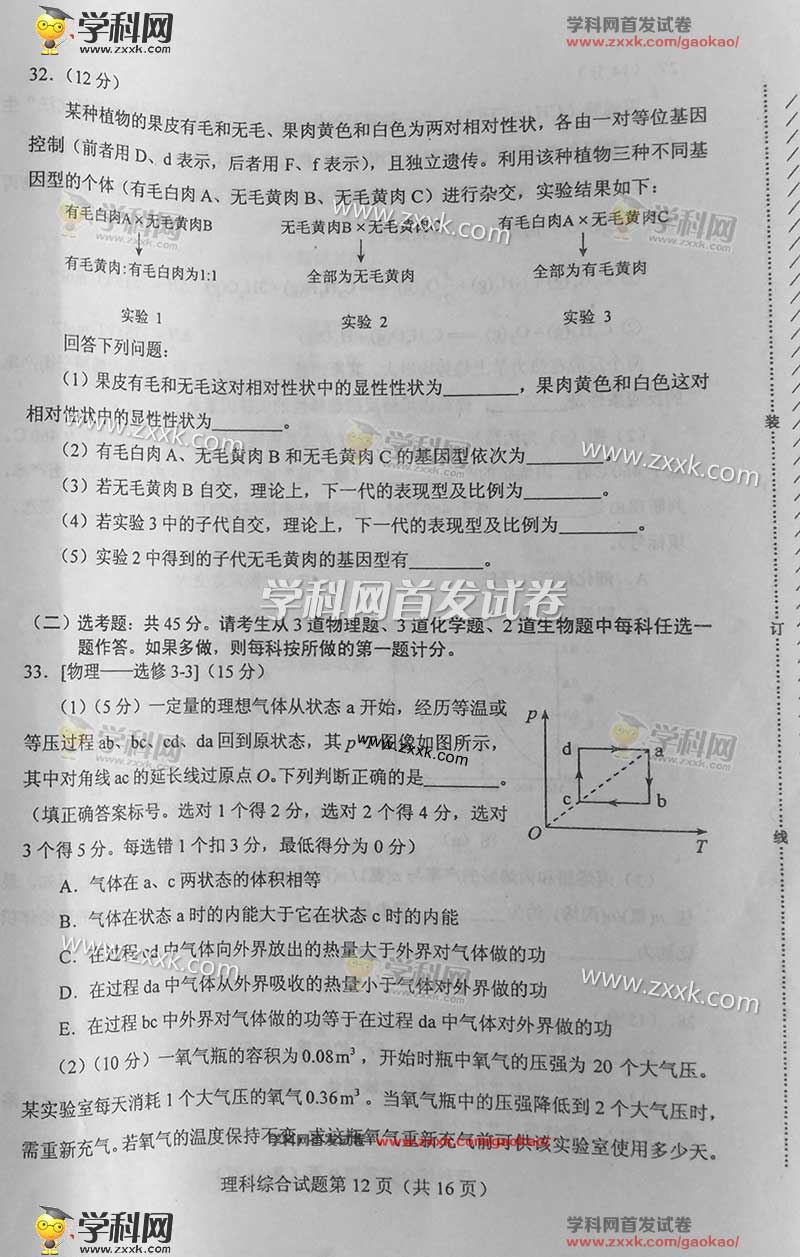 学科网
www.zxxk.com
学科网首发试卷
www.zxxk.com/gaokao/
32.（12分）
某种植物的果皮有毛和无毛、果肉黄色和白色为两对相对性状，各由一对等位基因
控制（前者用D、d表示，后者用F、f表示），且独立遗传。利用该种植物三种不同基
因型的个体（有毛白肉A、无毛黄肉B、无毛黄肉C）进行杂交，实验结果如下：
有毛白肉A×无毛黄肉B 无毛黄肉B×无毛黄肉C 有毛白肉A×无毛黄肉C
有毛黄肉:有毛白肉为1:1 全部为无毛黄肉 全部为有毛黄肉
实验 1 实验 2 实验 3
回答下列问题：
（1）果皮有毛和无毛这对相对性状中的显性性状为________，果肉黄色和白色这对
相对性状中的显性性状为________。
（2）有毛白肉A、无毛黄肉B和无毛黄肉C的基因型依次为________。
（3）若无毛黄肉B自交，理论上，下一代的表现型及比例为________。
（4）若实验3中的子代自交，理论上，下一代的表现型及比例为________。
（5）实验2中得到的子代无毛黄肉的基因型有________。
学科网首发试卷
（二）选考题：共45分。请考生从3道物理题、3道化学题、2道生物题中每科任选一
题作答。如果多做，则每科按所做的第一题计分。
33．[物理——选修3-3]（15分）
（1）（5分）一定量的理想气体从状态a开始，经历等温或
等压过程ab、bc、cd、da回到原状态，其p-T图像如图所示，
其中对角线ac的延长线过原点O。下列判断正确的是________。
（填正确答案标号。选对1个得2分，选对2个得4分，选对
3个得5分。每选错1个扣3分，最低得分为0分）
p
d a
c b
O T
A．气体在a、c两状态的体积相等
B．气体在状态a时的内能大于它在状态c时的内能
C．在过程cd中气体向外界放出的热量大于外界对气体做的功
D．在过程da中气体从外界吸收的热量小于气体对外界做的功
E．在过程bc中外界对气体做的功等于在过程da中气体对外界做的功
（2）（10分）一氧气瓶的容积为0.08m³，开始时瓶中氧气的压强为20个大气压。
某实验室每天消耗1个大气压的氧气0.36m³。当氧气瓶中的压强降低到2个大气压时，
需重新充气。若氧气的温度保持不变，求这瓶氧气重新充气前可供该实验室使用多少天。
学科网首发试卷 www.zxxk.com/gaokao/
理科综合试题第12页（共16页）
装
订
线
学科网
www.zxxk.com
学科网首发试卷
www.zxxk.com/gaokao/